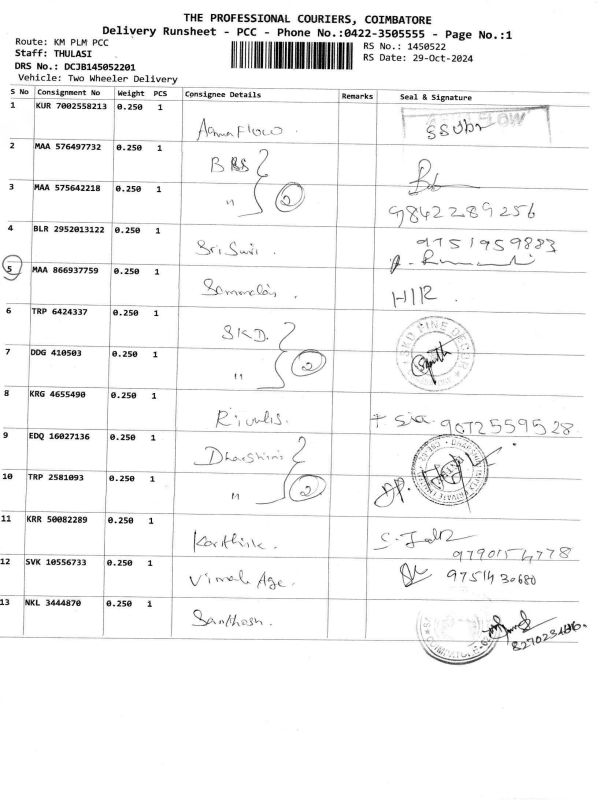 THE PROFESSIONAL COURIERS, COIMBATORE
Delivery Runsheet - PCC - Phone No.:0422-3505555 - Page No.:1
Route: KM PLM PCC
RS No.: 1450522
Staff: THULASI
RS Date: 29-Oct-2024
DRS No.: DCJB145052201
Vehicle: Two Wheeler Delivery
S No Consignment No Weight PCS Consignee Details Remarks Seal & Signature
1 KUR 7002558213 0.250 1
FLOW
2 MAA 576497732 0.250 1
3 MAA 575642218 0.250 1
" 2
9842289256
4 BLR 2952013122 0.250 1
9751959883
5 MAA 866937759 0.250 1
6 TRP 6424337 0.250 1
SKD.
7 DDG 410503 0.250 1
" 2
8 KRG 4655490 0.250 1
9072559528
9 EDQ 16027136 0.250 1
10 TRP 2581093 0.250 1
" 2
11 KRR 50082289 0.250 1
Karthik.
9790154778
12 SVK 10556733 0.250 1
Vimal Age. 9751430680
13 NKL 3444870 0.250 1
Santhosh.